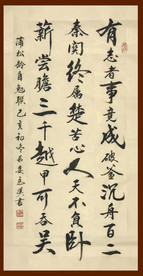 有志者事竟成破釜沉舟百二
秦関终属楚苦心人天不負卧
薪嘗膽三千越甲可吞吴
蒲松龄自勉联己亥初冬書